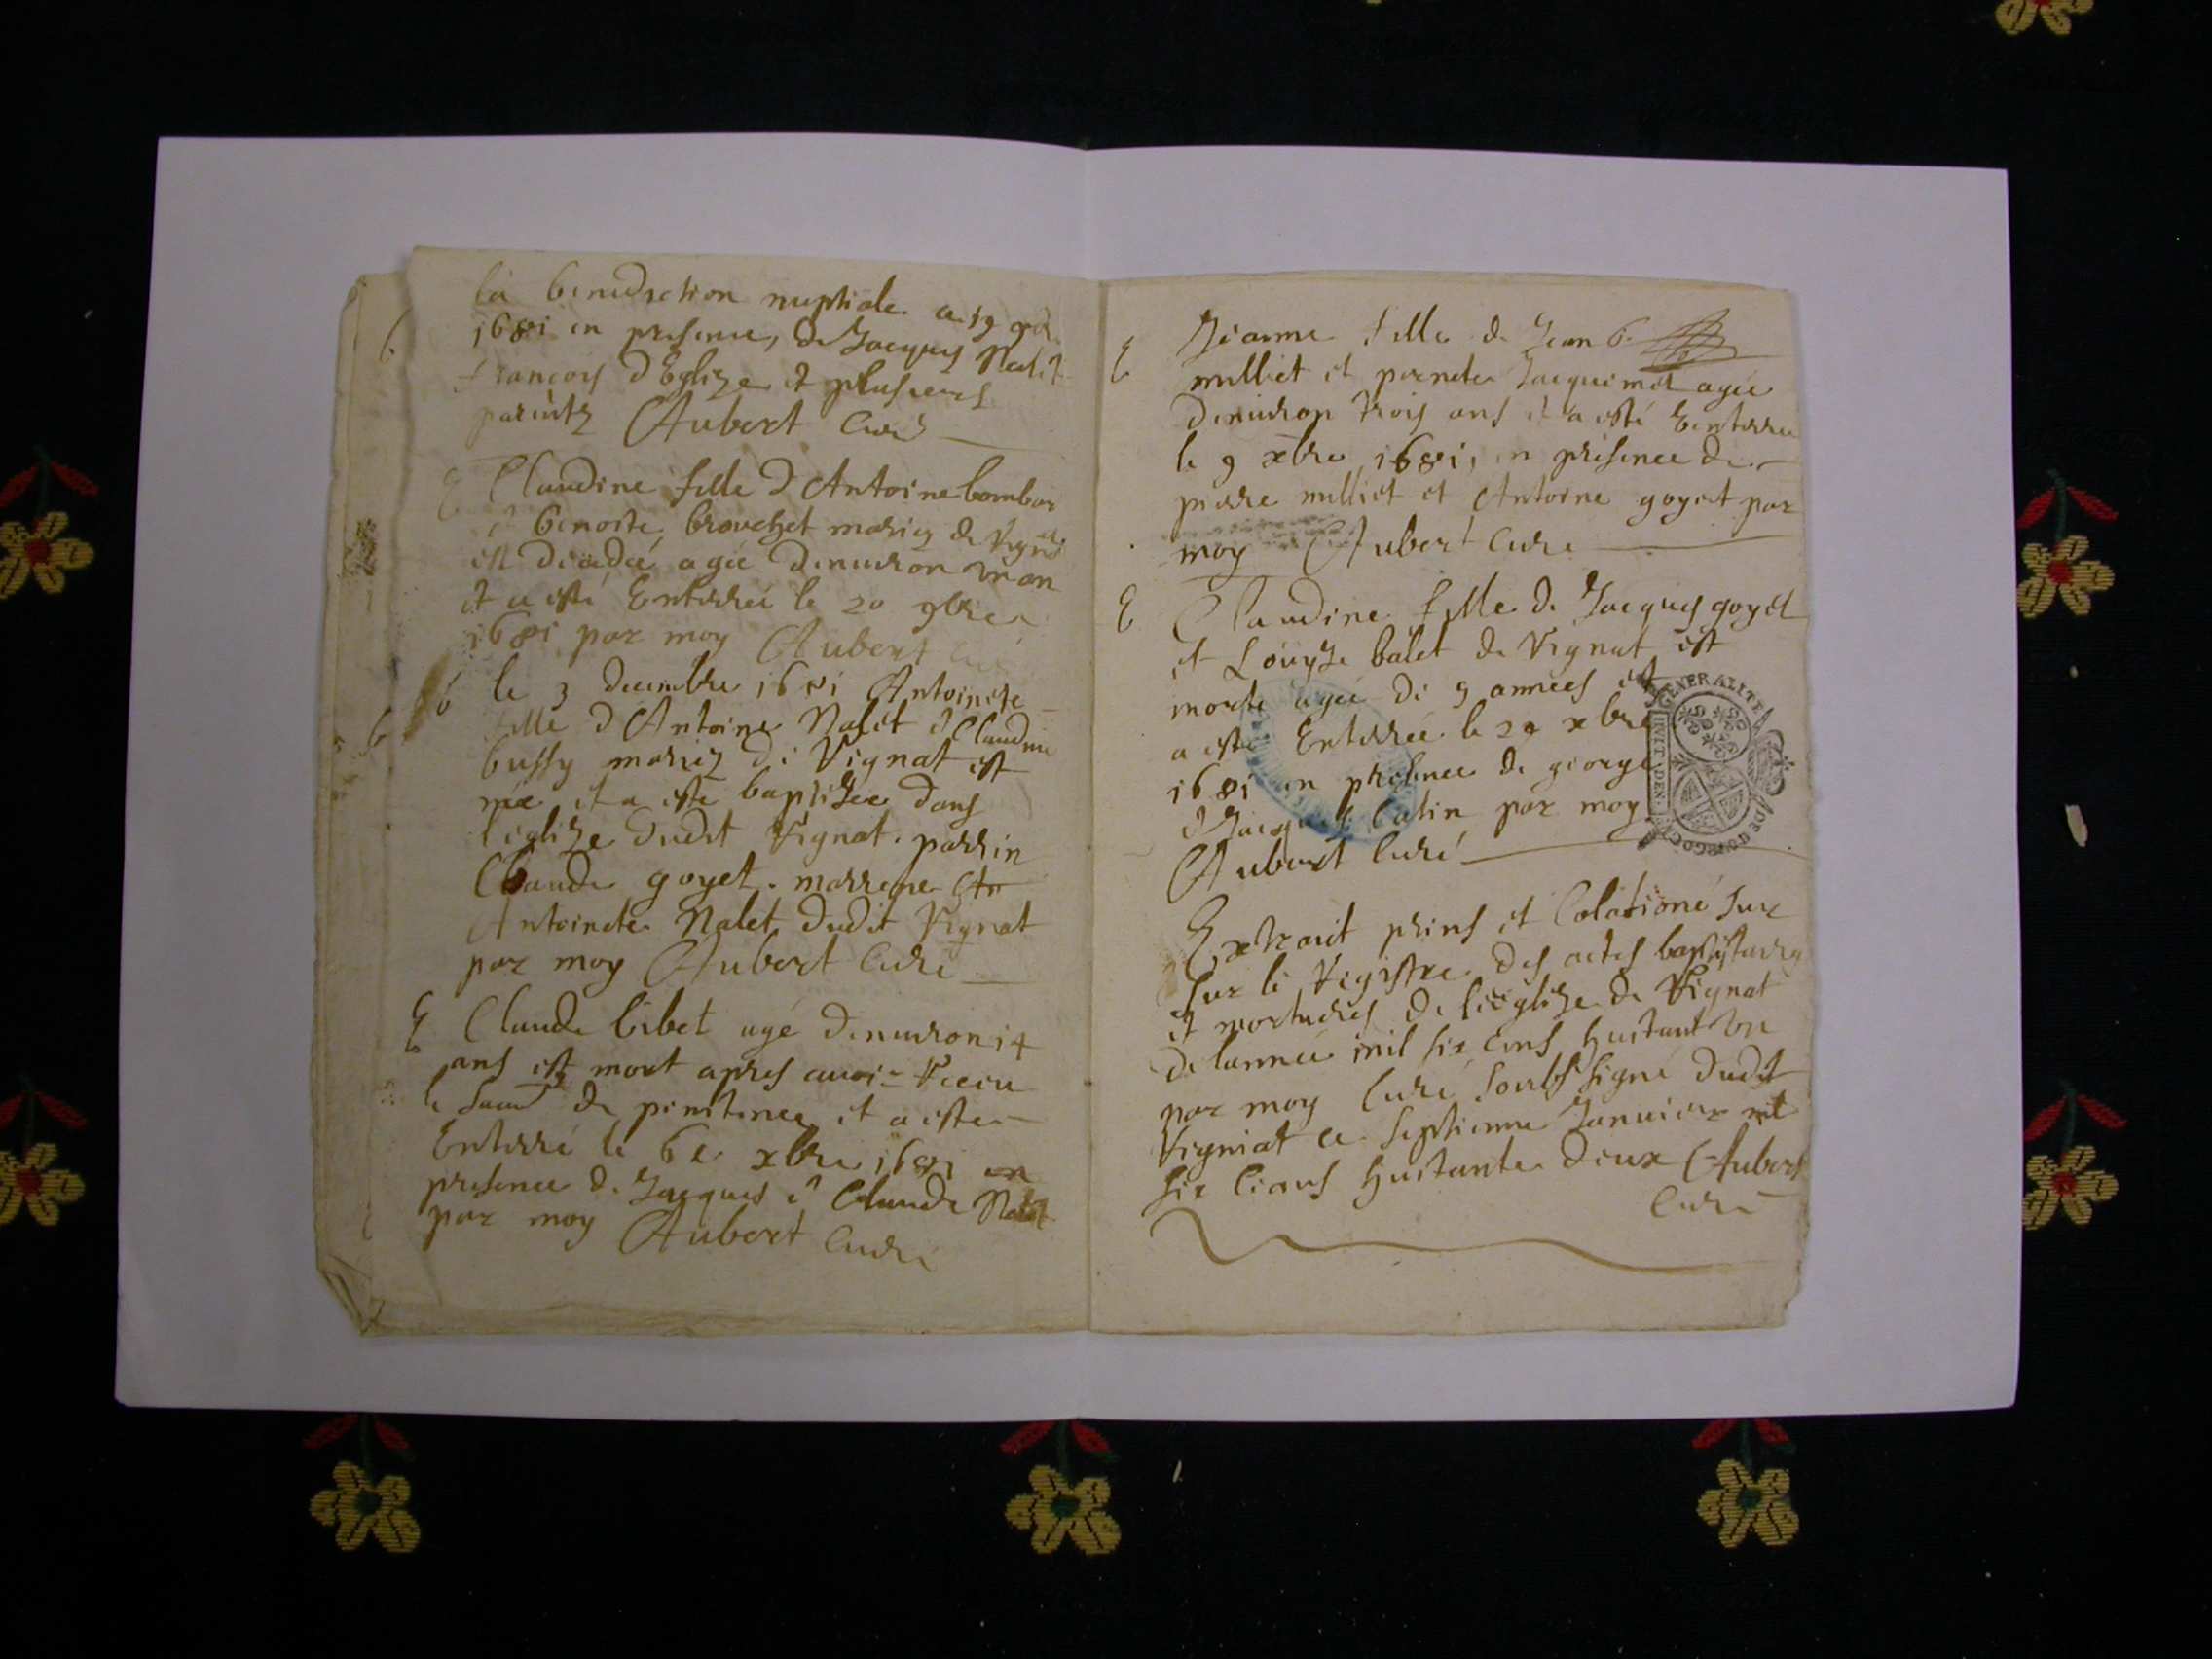 la benediction nuptiale ce 19
1681 en presence, de Jacques Nalet
françois d Eglize et plusieurs
parentz Aubert Curé
E Claudine fille d Antoine bombar
et benoite brouchet mariez de Vignat
est decedeé ageé denuiron vn an
et a esté Enterreé le 20 9bre
1681 par moy Aubert curé
b le 3 decembre 1681 Antoinete
fille d Antoine Nalet et Claudine
bussy mariez de Vignat est
neé et a este baptiseé dans
l eglize dudit Vignat. parrin
Claude goyet. marrene An
Antoinete Nalet dudit Vignat
par moy Aubert Curé
E Claude bibet agé denuiron 14
ans est mort apres auoir Receu
le de penitence et a este
Enterré le 6e xbre 1681 en
presence de Jacques et Claude Nalet
par moy Aubert Curé
E Jeanne fille de Jean b.
milliet et pernete Jacquemet ageé
denuiron trois ans et a esté Eenterreé
le 9 xbre 1681, en presence de
pierre milliet et Antoine goyet par
moy Aubert Curé
E Claudine fille de Jacques goyet
et Louyse balet de Vignat est
morte ageé de 9 anneés et
a este Enterreé le 29 xbre
1681 en presence de george
et Jacques Catin par moy
Aubert Curé
GENERALITE DE BOURGOGNE
HUIT DEN.
Extrait prins et Colationé sur
sur le Registre des actes baptistaires
et mortueres de lieeglize de Vignat
de lanneé mil six Cens huitant vn
par moy Curé soubssigné dudit
Vigniat ce septieme Januier mil
six Cians huitante deux Aubert
Curé